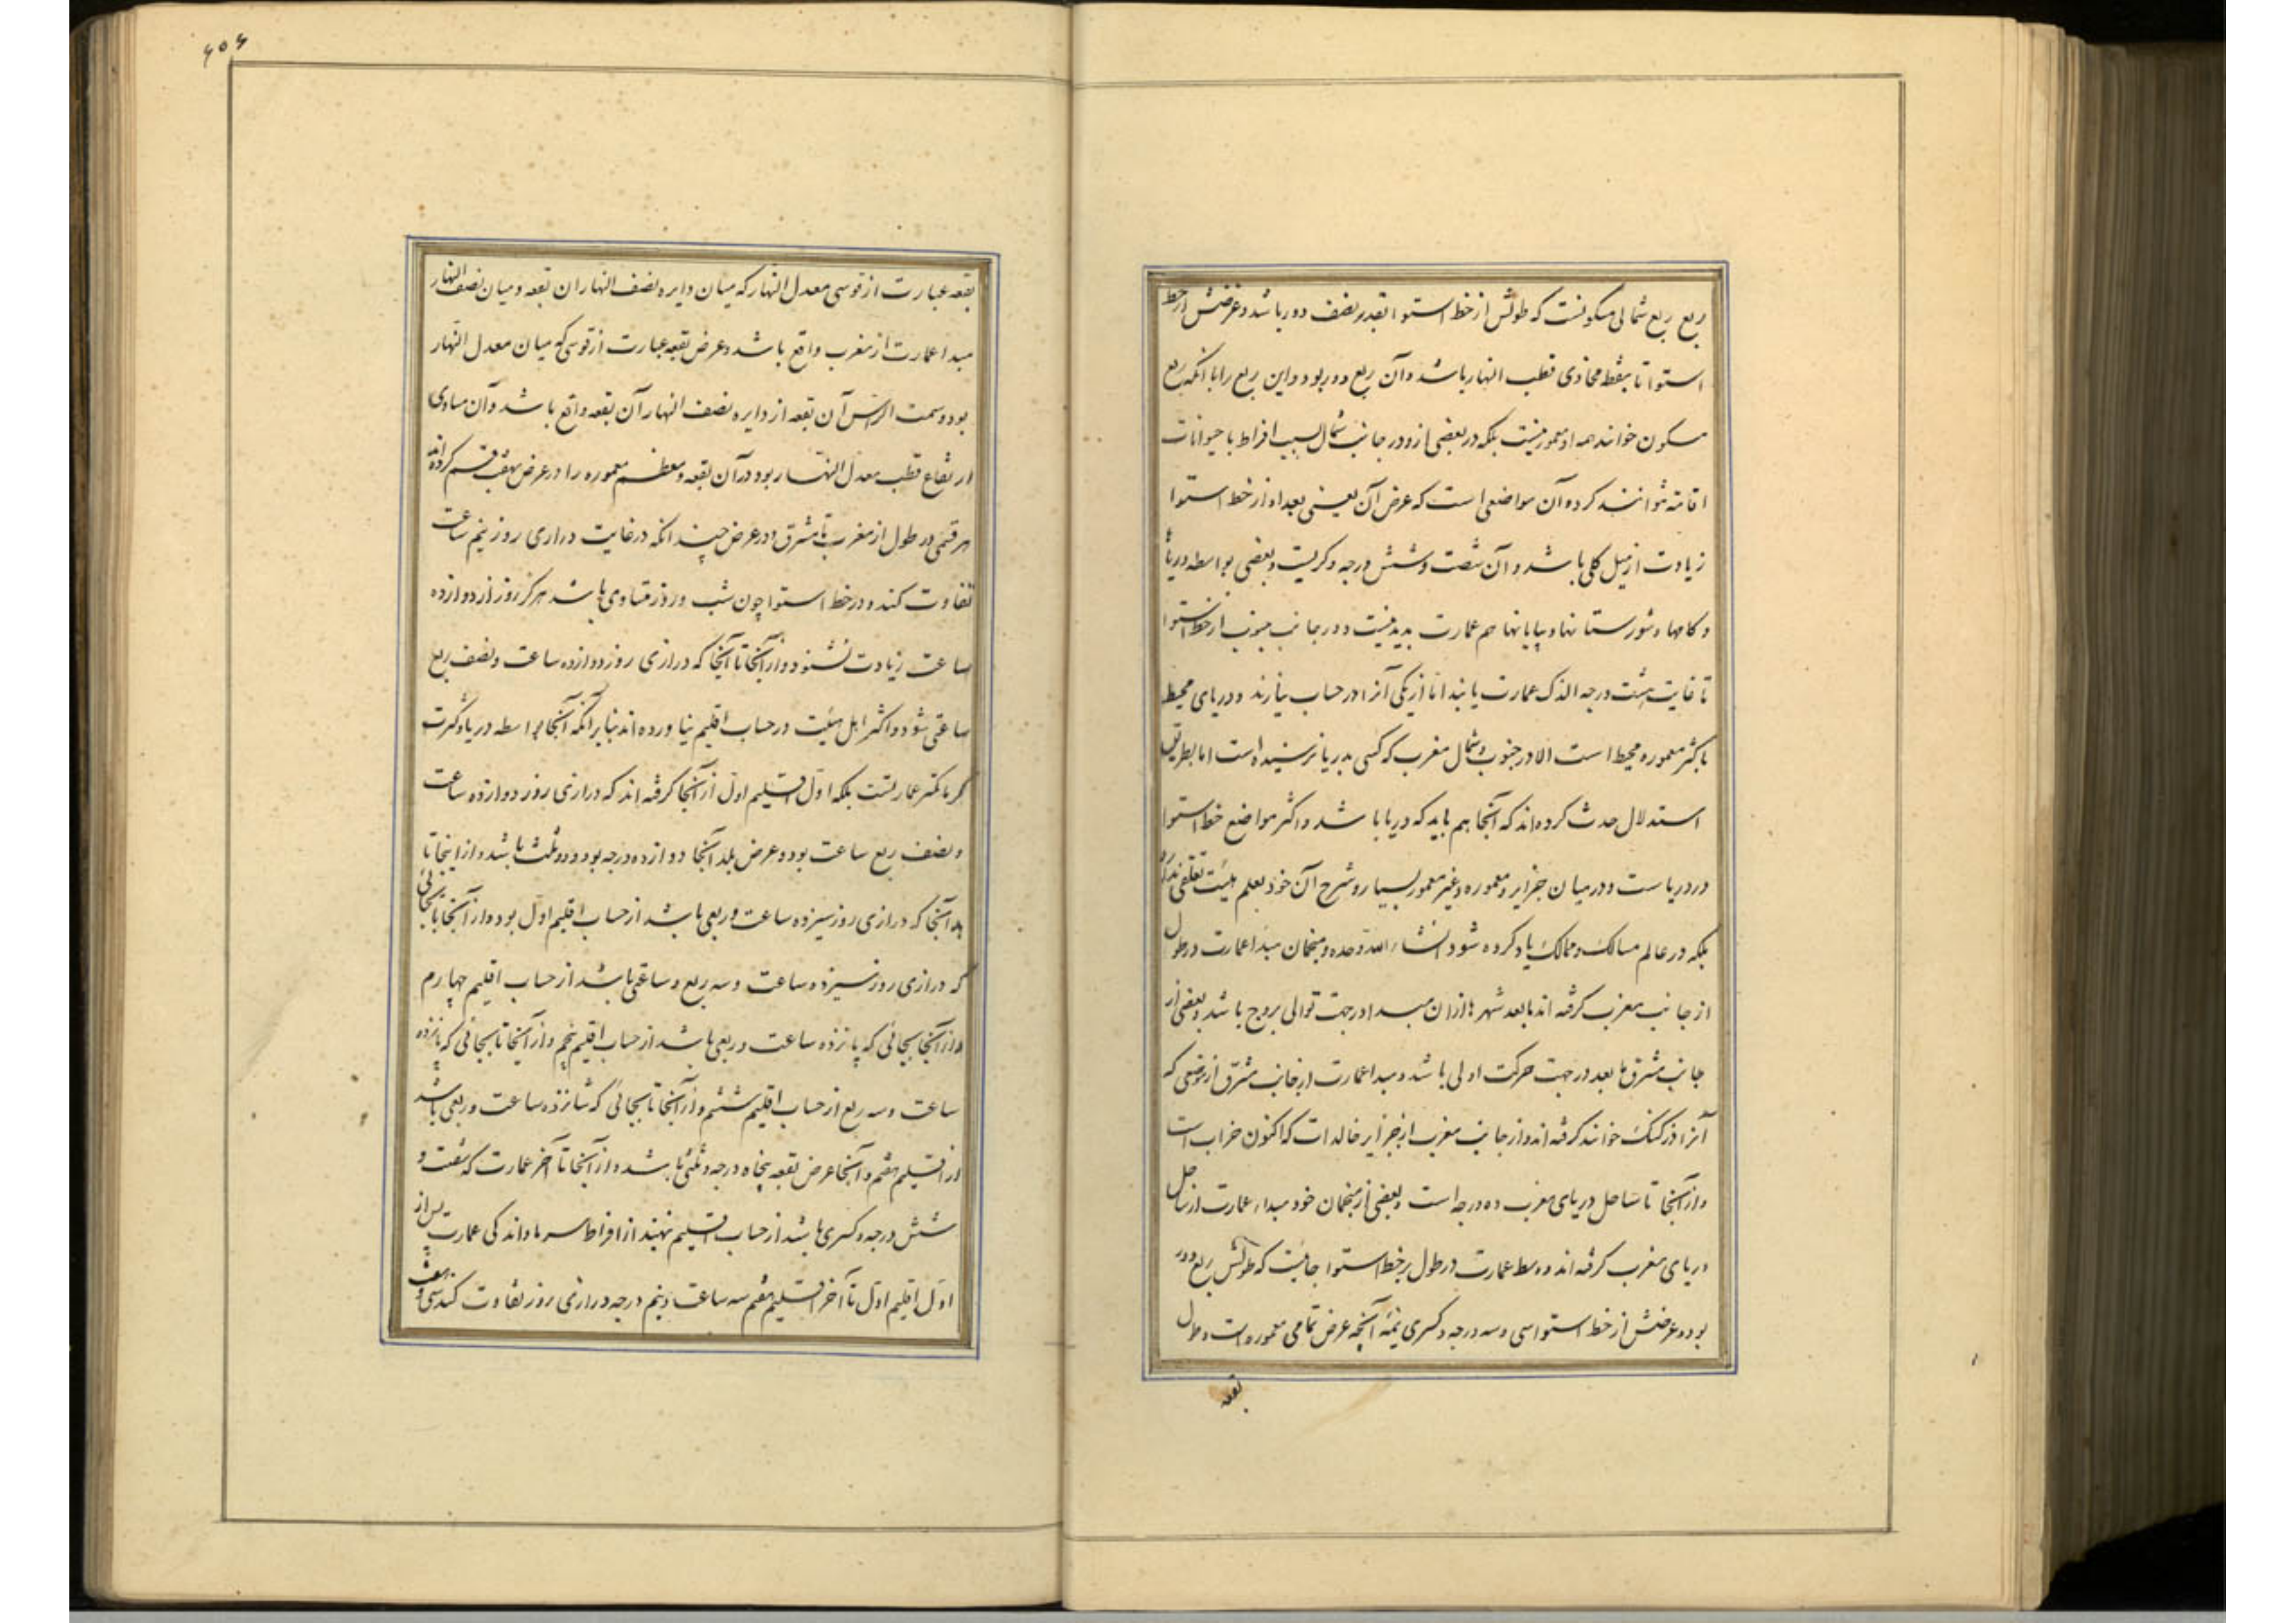 ربع ربع شمالی مسکونست که طولش از خط استوا بقدر نصف دور باشد و عرضش از خط
استوا تا بنقطه محاذی قطب النهار باشد و آن ربع دور بود و این ربع را با آنکه ربع
مسکون خوانند همه او معمور نیست بلکه در بعضی ازو در جانب شمال بسبب افراط با حیوانات
اقامة نتوانند کرد و آن مواضعی است که عرض آن یعنی بعد او از خط استوا
زیادت از میل کلی باشد و آن شصت و شش درجه و کریست و بعضی بواسطه دریا
و کامها و شورستانها و بیابانها هم عمارت پدید نیست و در جانب جنوب از خط استوا
تا غایت هشت درجه اندک عمارت یابند اما از یکی آنرا در حساب نیارند و دریای محیط
باکثر معموره محیط است الا در جنوب و شمال مغرب که کسی بدریا نرسیده است اما بطریق
استدلال حدث کرده‌اند که آنجا هم باید که دریا باشد و اکثر مواضع خط استوا
در دریاست و در میان جزایر و معموره و غیر معمور بسیار و شرح آن خود بعلم هیئت تعلقی ندارد
بلکه در عالم مسالک و ممالک یاد کرده شود انشاء الله وحده و منجمان مبدا عمارت در طول
از جانب مغرب گرفته اند تا بعد شهرها از ان مبدا در جهت توالی بروج باشد و بعضی از
جانب مشرق تا بعد در جهت حرکت اولی باشد و مبدا عمارت از جانب مشرق از موضعی که
آنرا ذرکنک خوانند گرفته اند و از جانب مغرب از جزایر خالدات که اکنون خراب است
و از آنجا تا ساحل دریای مغرب ده درجه است و بعضی از منجمان خود مبداء عمارت از ساحل
دریای مغرب گرفته اند و وسط عمارت در طول بر خط استوا جائیست که طولش ربع دور
بود و عرضش از خط استوا سی و سه درجه و کسری نیمهٔ آنچه عرض تمامی معموره است و طول
بقعه
۶۰۶
بقعه عبارت از قوسی معدل النهار که میان دایره نصف النهار ان بقعه و میان نصف النهار
مبدا عمارت از مغرب واقع باشد و عرض بقعه عبارت از قوسی که میان معدل النهار
بود و سمت الراس آن بقعه از دایره نصف النهار آن بقعه واقع باشد و آن مساوی
ارتفاع قطب معدل النهار بود در آن بقعه و معظم معموره را در عرض بهفت قسم کرده‌اند
هر قسمی در طول از مغرب تا مشرق و در عرض چندانکه در غایت درازی روز نیم ساعت
تفاوت کند و در خط استوا چون شب و روز متساوی باشد هرگز روز از دوازده
ساعت زیادت نشود و از آنجا تا آنجا که درازی روز دوازده ساعت و نصف ربع
ساعتی شود و اکثر اهل هیئت در حساب اقلیم نیاورده اند بنابر آنکه آنجا بواسطه دریا و کثرت
گرما کمتر عمارتست بلکه اول اقلیم اول از آنجا گرفته اند که درازی روز دوازده ساعت
و نصف ربع ساعت بود و عرض بلد آنجا دوازده درجه بود و دو ثلث باشد و از اینجا تا
بدآنجا که درازی روز سیزده ساعت و ربعی باشد از حساب اقلیم اول بود و از آنجا تا بجائی
که درازی روز سیزده ساعت و سه ربع و ساعتی باشد از حساب اقلیم چهارم
و از آنجا بجائی که پانزده ساعت و ربعی باشد از حساب اقلیم پنجم و از آنجا تا بجائی که پانزده
ساعت و سه ربع از حساب اقلیم ششم و از آنجا تا بجائی که شانزده ساعت و ربعی باشد
از اقلیم هفتم و آنجا عرض بقعه پنجاه درجه و ثلثی باشد و از آنجا تا آخر عمارت که شصت و
شش درجه و کسری باشد از حساب اقلیم نهند از افراط سرما و اندکی عمارت پس از
اول اقلیم اول تا آخر اقلیم هفتم سه ساعت و نیم درجه درازی روز تفاوت کند سی و هفت